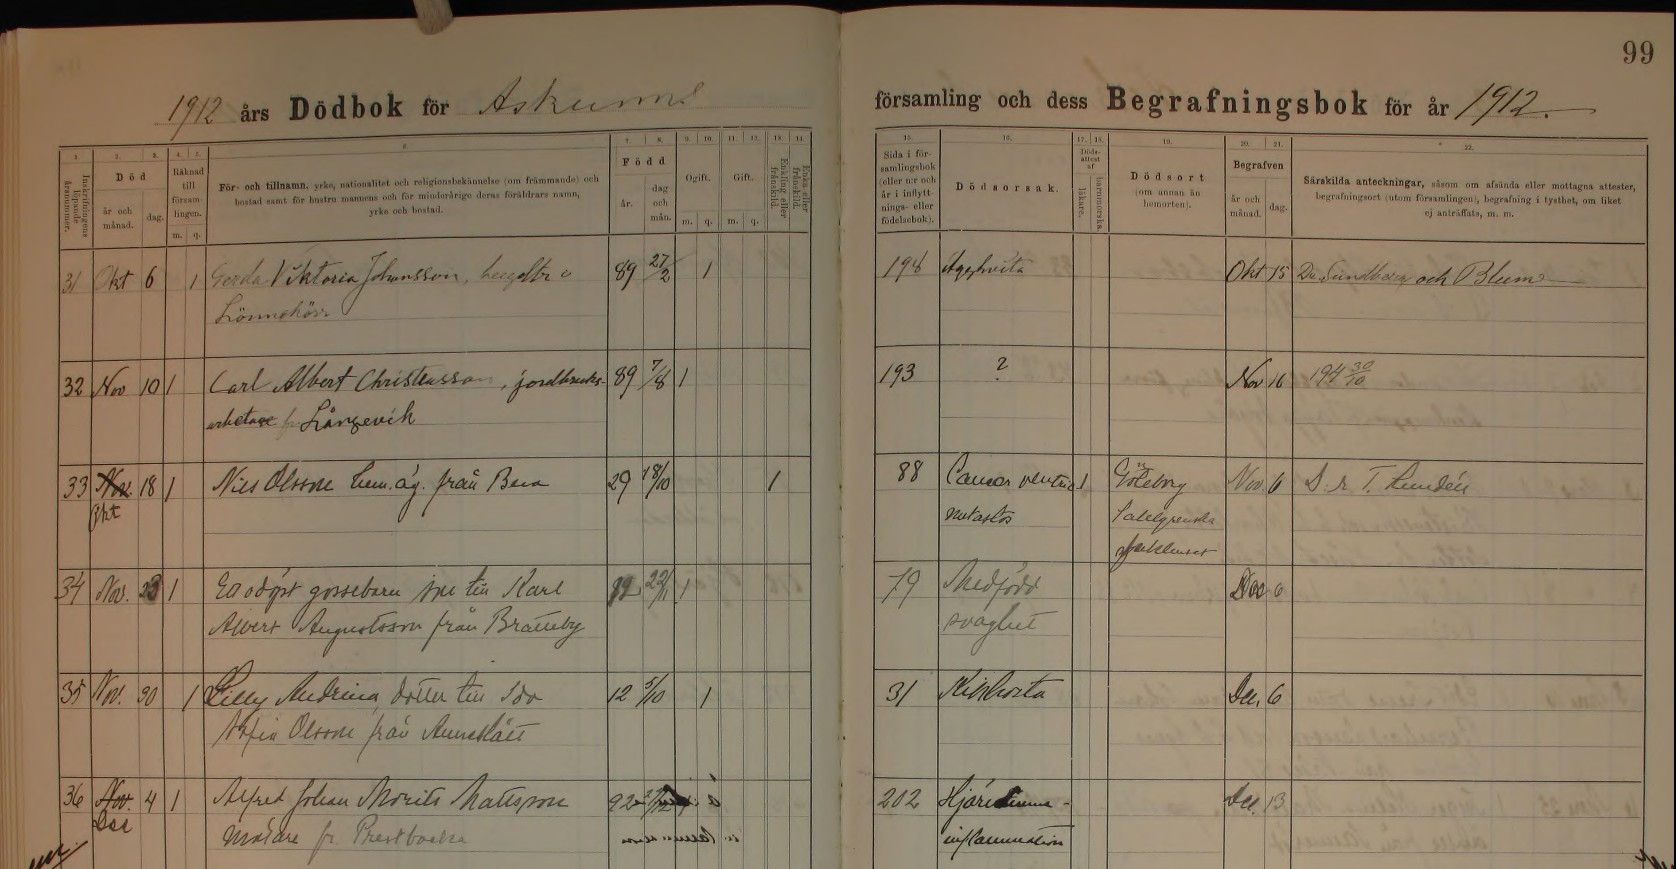 99
1912 års Dödbok för Askums
församling och dess Begrafningsbok för år 1912.
1. 2. 3. 4. 5. 6. 7. 8. 9. 10. 11. 12. 13. 14.
Inskrifningens löpande årsnummer.
Död
år och månad.
dag.
Räknad till församlingen.
m. q.
För- och tillnamn, yrke, nationalitet och religionsbekännelse (om främmande) och
bostad samt för hustru mannens och för minderårige deras föräldrars namn,
yrke och bostad.
Född
år.
dag och mån.
Ogift.
m. q.
Gift.
m. q.
Enkling eller frånskild.
Enka eller frånskild.
15. 16. 17. 18. 19. 20. 21. 22.
Sida i församlingsbok (eller n:r och år i inflyttnings- eller födelsebok).
Dödsorsak.
Dödsattest af
läkare.
barnmorska.
Dödsort
(om annan än hemorten).
Begrafven
år och månad.
dag.
Särskilda anteckningar, såsom om afsända eller mottagna attester,
begrafningsort (utom församlingen), begrafning i tysthet, om liket
ej anträffats, m. m.
31 Okt 6 1 Gerda Viktoria Johansson, 89 27/2 1 194 Okt 15 Dr. Sundberg och Blum
32 Nov 10 1 Carl Albert Christensson, jordbruks- 89 7/8 1 193 ? Nov 16 194 30/10
arbetare fr. Långevik
33 Nov. 18 1 Nils Olsson hem.äg. från 29 18/10 1 88 Cancer ventric 1 Göteborg Nov. 6 D:r T.
Okt Sahlgrenska
sjukhuset
34 Nov. 23 1 Ett odöpt gossebarn son till Karl 12 22/11 1 79 Medfödd Dec 6
Albert Augustsson från Brattby svaghet
35 Nov. 30 1 Lilly Andrina, dotter till 12 5/10 1 31 Kikhosta Dec. 6
Olsson från
36 Nov. 4 1 Alfred Johan Morits Mattsson 92 202 Dec. 13
Dec målare fr. Prestbacka inflammation